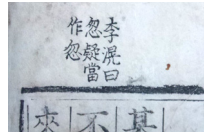 李滉曰
忽疑當
作忽
不
來